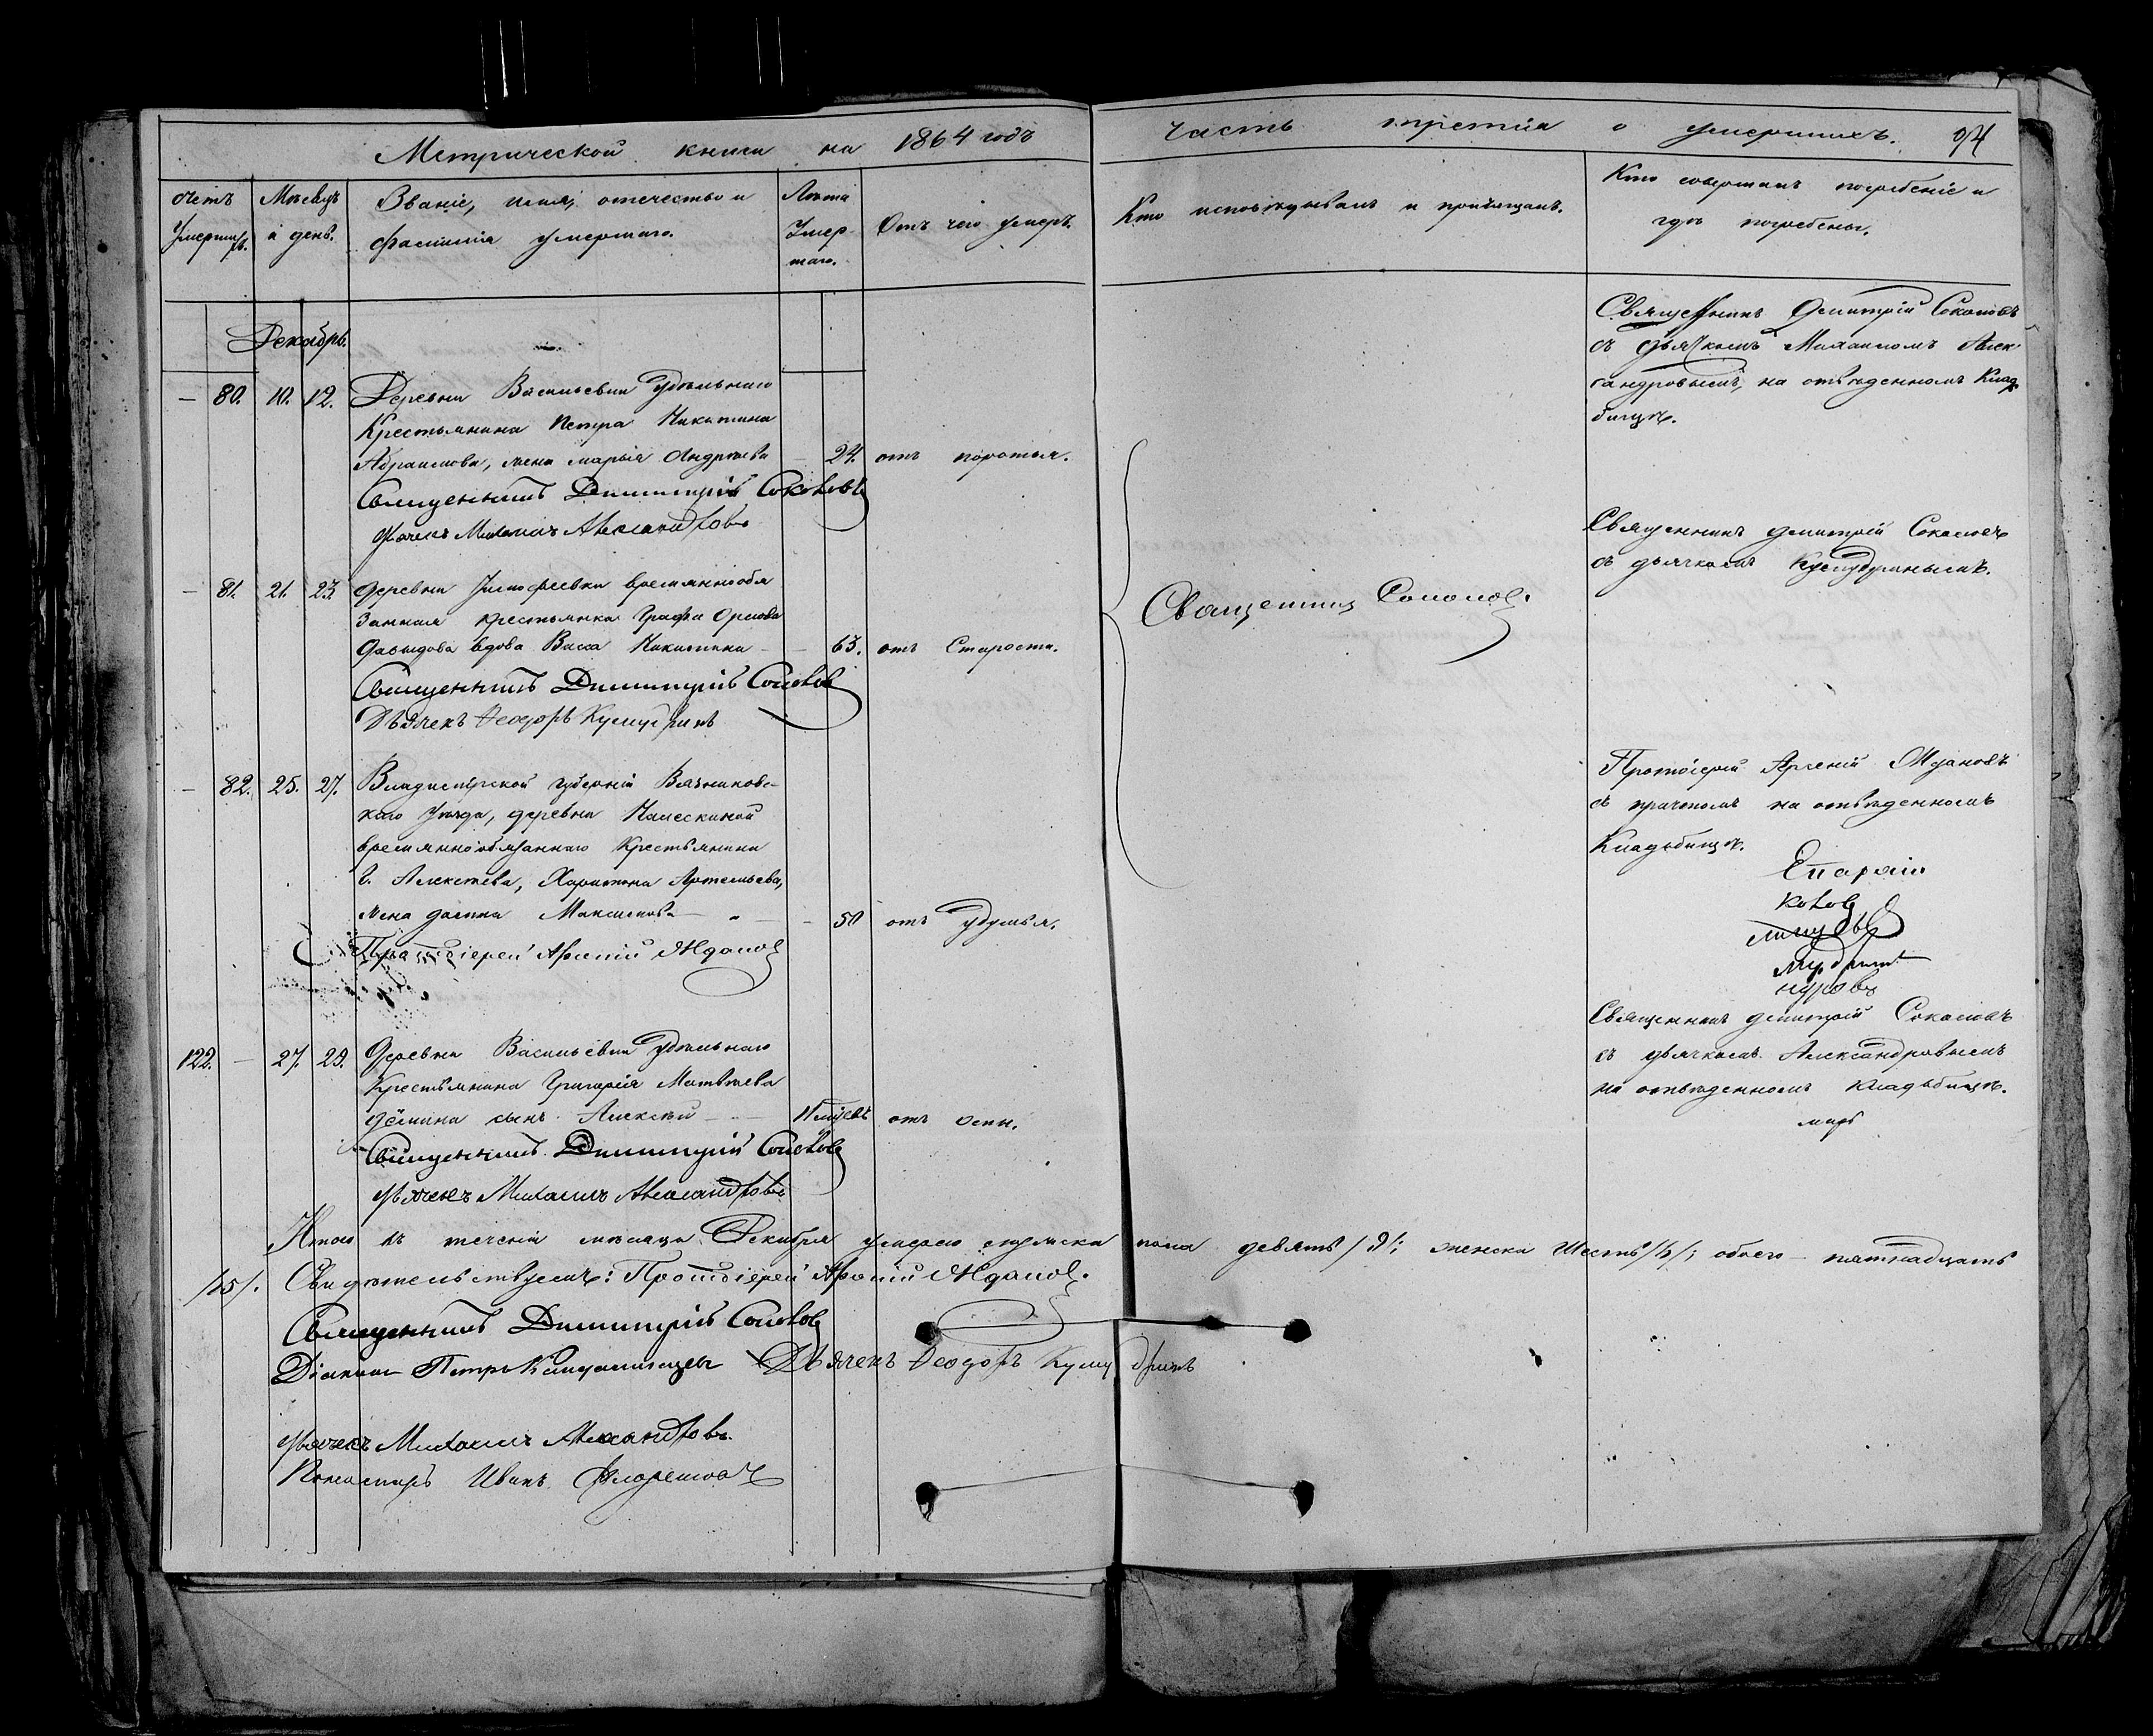 Метрической книги на 1864 годъ
часть третія о умершихъ. 94
Счетъ Умершихъ.
Мѣсяцъ и день.
Званіе, имя, отечество и фамилія умершаго.
Лѣта Умершаго.
Отъ чего умеръ.
Кто исповѣдывалъ и пріобщалъ.
Кто совершалъ погребеніе и
гдѣ погребены.
Декабрь.
— 80. 10. 12. Деревни Васильевки удѣльнаго
Крестьянина Петра Никитина
Абрамова, жена Марья Андреева — 24. отъ родовъ.
Священникъ Димитрій Соколовъ
Дьячекъ Михаилъ Александровъ
Священникъ Дмитрій Соколовъ
съ дьячкомъ Михаиломъ Алек
сандровымъ, на отведенномъ Клад
бищѣ.
— 81. 21. 23. Деревни Тимофеевки временнообя
занная крестьянка Графа Орлова
Давыдова вдова Васса Никитина — 63. отъ Старости.
Священникъ Димитрій Соколовъ
Дьячекъ Ѳеодоръ
Священникъ Дмитрій Соколовъ
съ дьячкомъ
Священникъ Соколовъ.
— 82. 25. 27. Владимірской губерніи Вязниковс-
каго уѣзда, деревни
временнообязаннаго Крестьянина
Г. Алексѣева, Харитона Артемьева,
жена Максимова — 50 отъ удушья.
Протоіерей Арсеній Ждановъ
Протоіерей Арсеній Ждановъ
съ причтомъ на отведенномъ
Кладбищѣ.
122. — 27. 29. Деревни Васильевки удѣльнаго
Крестьянина Григорія Матвѣева
Дёмина сынъ Алексѣй — отъ оспы.
Священникъ Димитрій Соколовъ
Дьячекъ Михаилъ Александровъ
Священникъ Дмитрій Соколовъ
съ дьячкомъ Александровымъ
на отведенномъ кладбищѣ.
Итого въ теченіи мѣсяца Декабря умерло мужеска пола девять /9/; женска шесть /6/; обоего — пятнадцать
/15/. Свидѣтельствуемъ: Протоіерей Арсеній Ждановъ.
Священникъ Димитрій Соколовъ
Діаконъ Петръ Дьячекъ Ѳеодоръ
Дьячекъ Михаилъ Александровъ.
Пономарь Иванъ